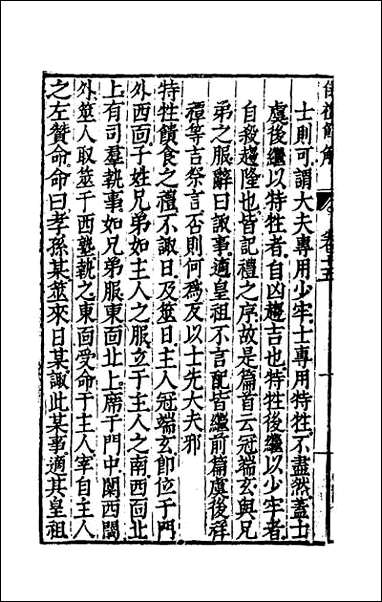 儀禮解𧣈 卷十五
士則可謂大夫專用少牢士專用特牲不盡然蓋士
虞後繼以特牲者自凶趨吉也特牲後繼以少牢者
自殺趨隆也皆記禮之序故是篇首云冠端玄與兄
弟之服辭曰諏事適皇祖不言配皆繼前篇虞後祥
禫等吉祭言否則何為反以士先大夫邪
特牲饋食之禮不諏日及筮日主人冠端玄卽位于門
外西面子姓兄弟如主人之服立于主人之南西面北
上有司羣執事如兄弟服東面北上席于門中闑西閾
外筮人取筮于西塾執之東面受命于主人宰自主人
之左贊命命曰孝孫某筮來日某諏此某事適其皇祖